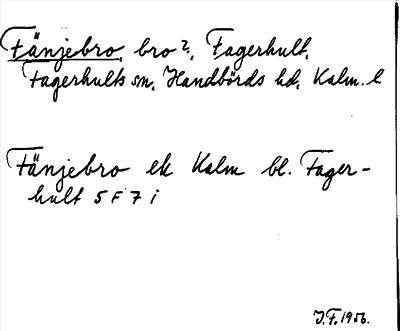 Fänjebro, bro?, Fagerhult,
Fagerhults sn, Handbörds hd, Kalm. l
Fänjebro ek Kalm bl. Fager-
hult 5 F 7 i
J.F. 1956.